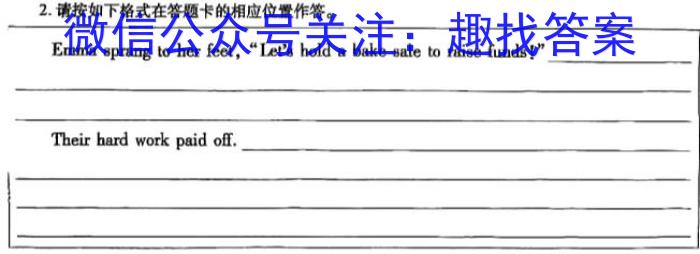 2. 请按如下格式在答题卡的相应位置作答。
微信公众号关注：趣找答案
Emma sprang to her feet, “Let's hold a bake sale to raise funds!”
Their hard work paid off.